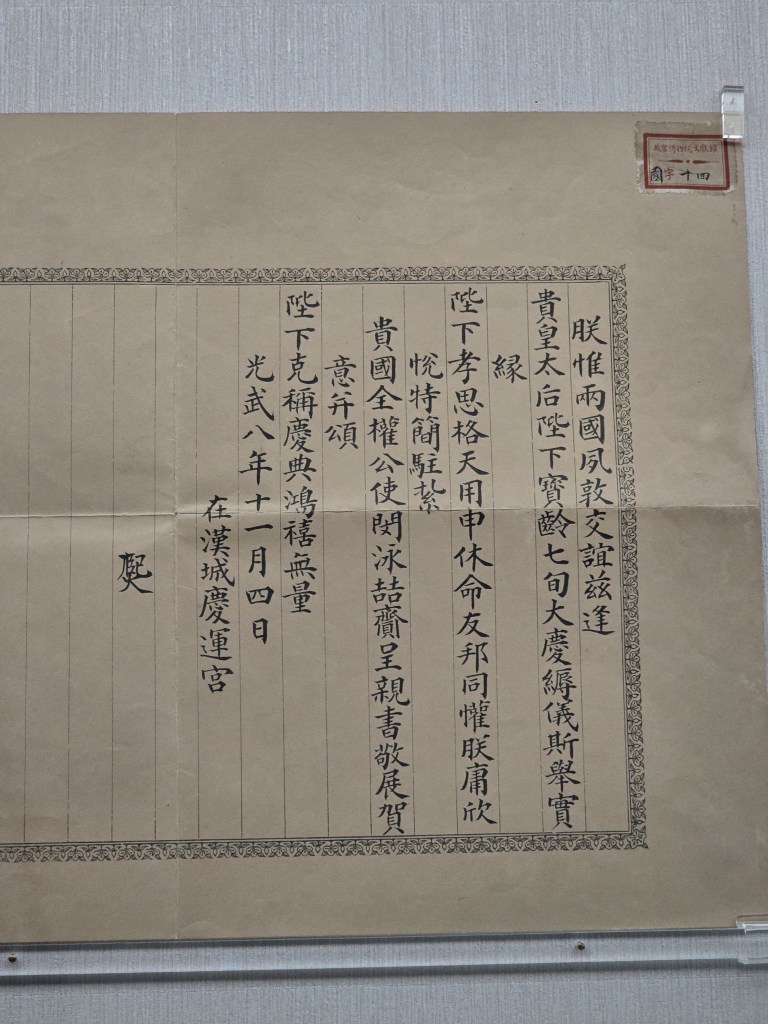 故宮博物院文獻館
國字十四
朕惟兩國夙敦交誼茲逢
貴皇太后陛下寶齡七旬大慶縟儀斯舉實
緣
陛下孝思格天用申休命友邦同懽朕庸欣
悅特簡駐紮
貴國全權公使閔泳喆齎呈親書敬展賀
意并頌
陛下克稱慶典鴻禧無量
光武八年十一月四日
在漢城慶運宮
㷩